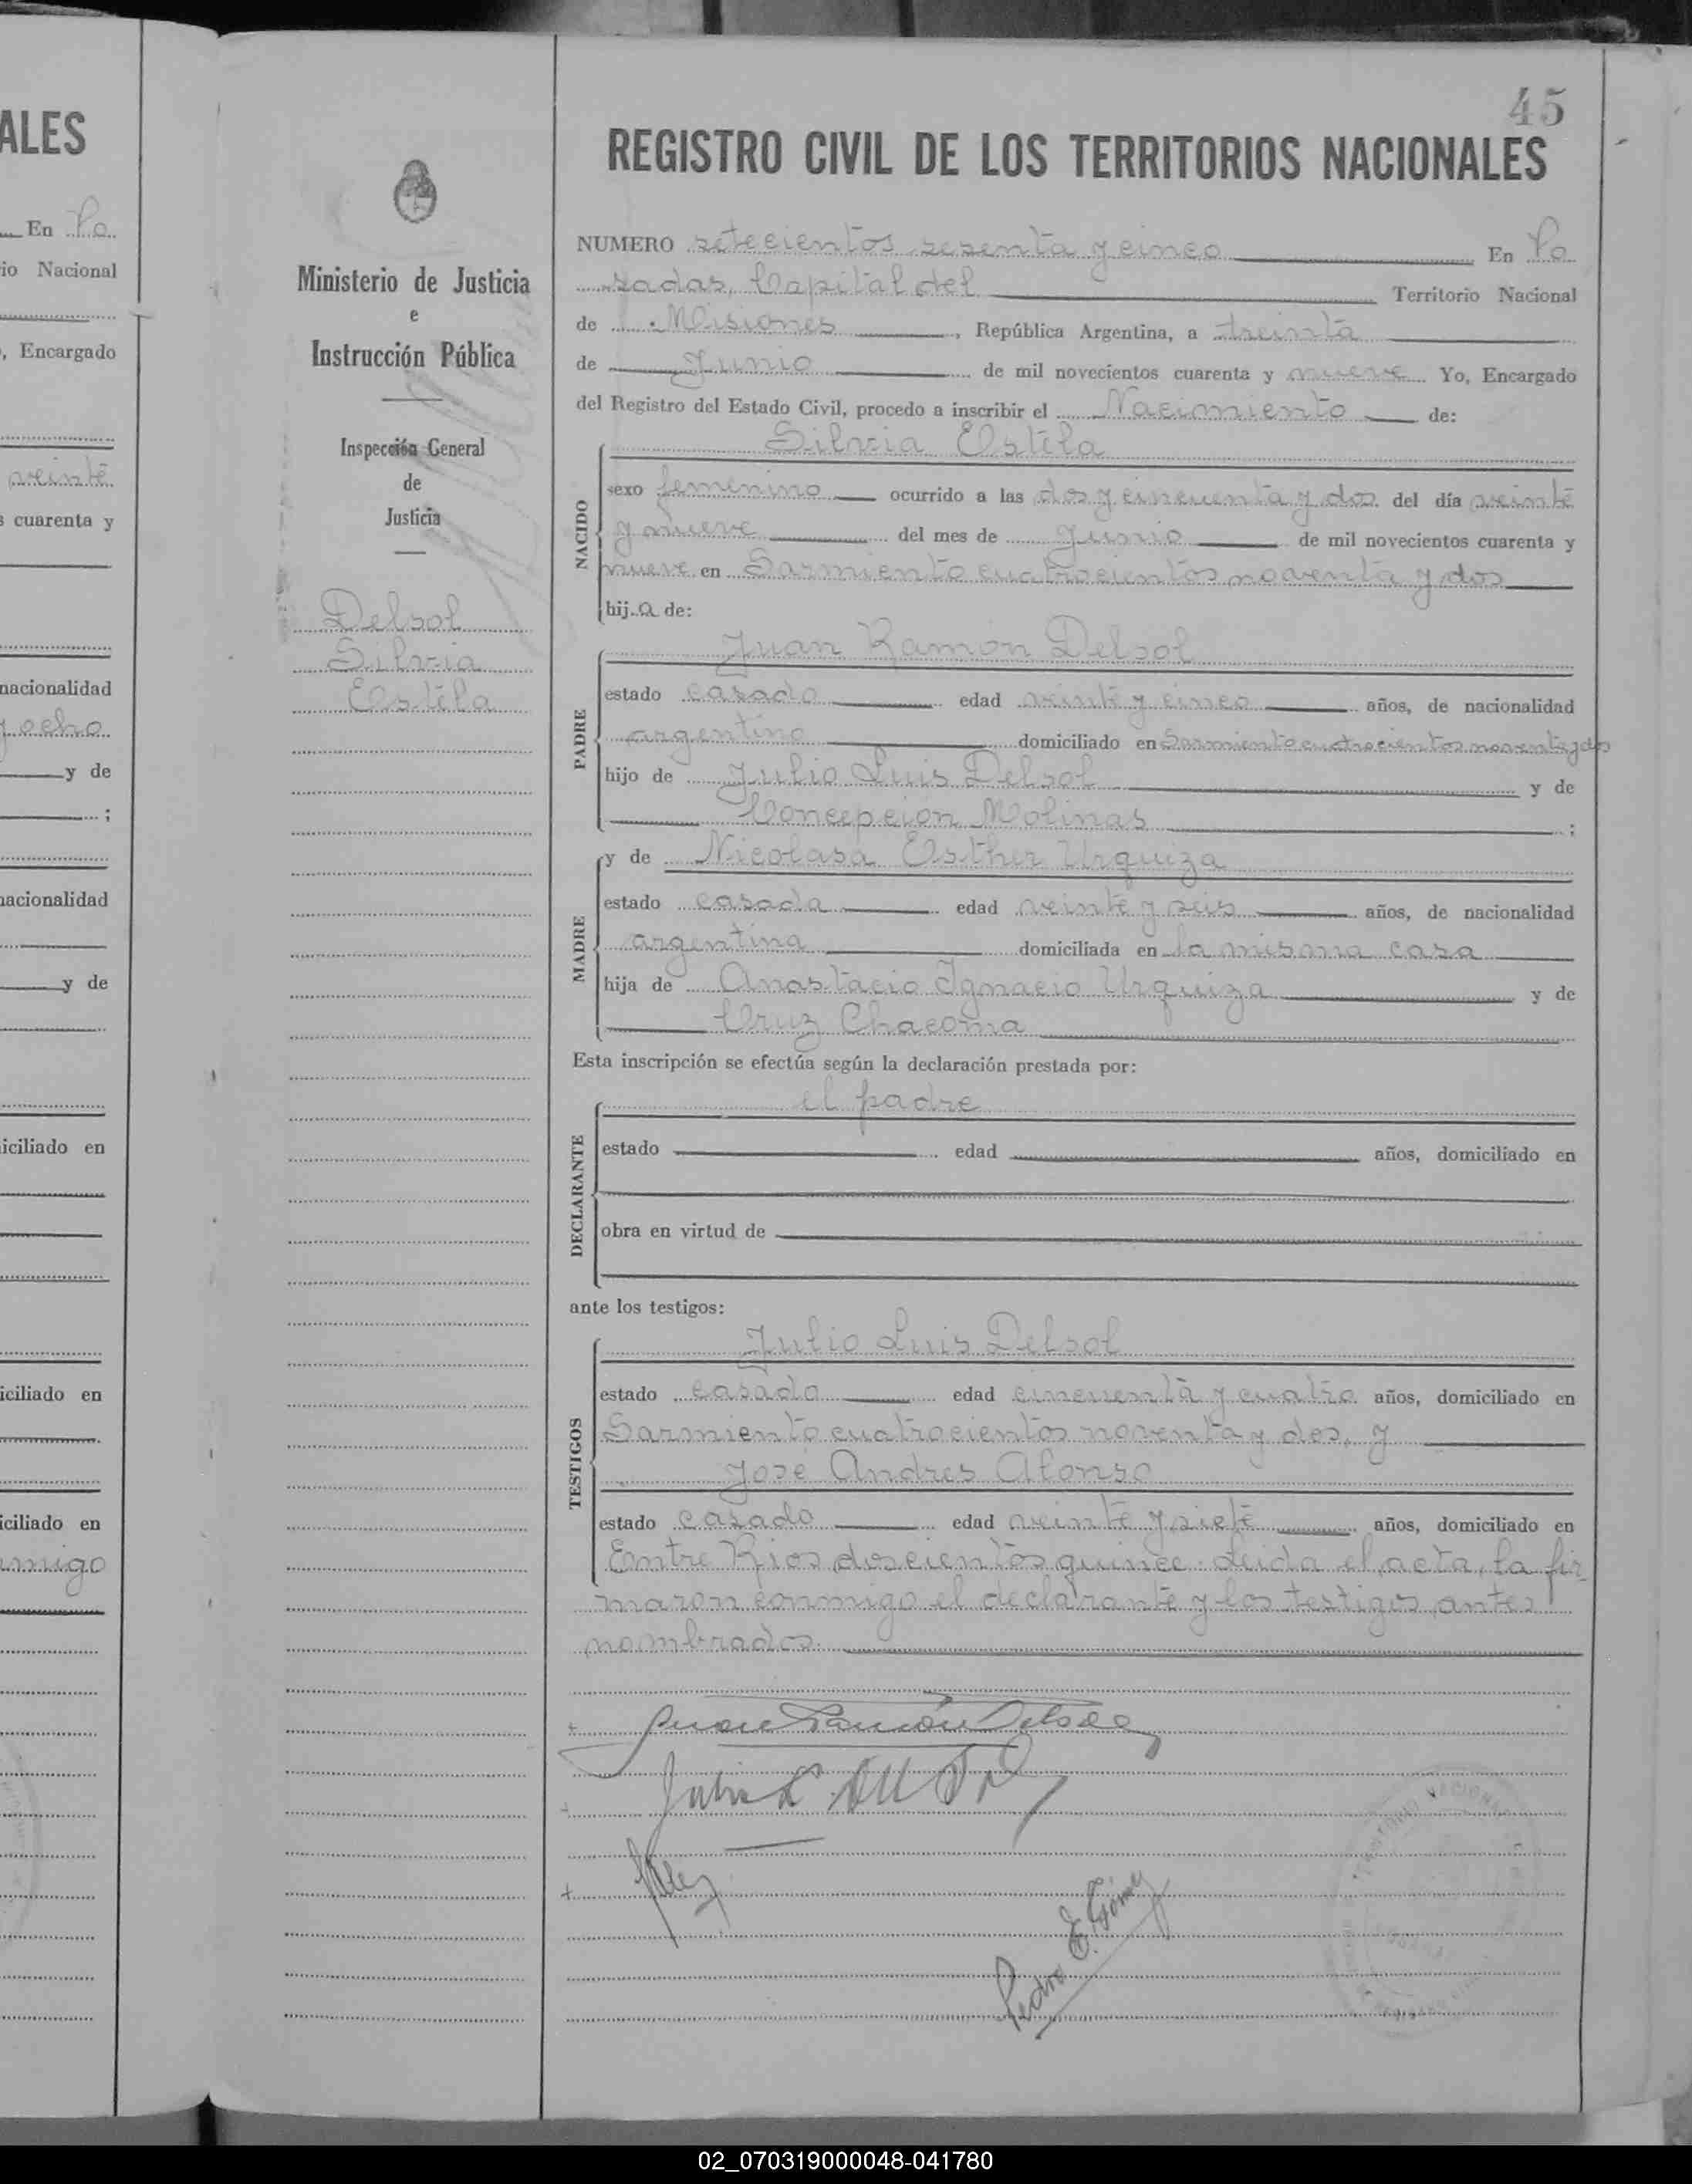 45
REGISTRO CIVIL DE LOS TERRITORIOS NACIONALES
NUMERO setecientos sesenta y cinco En Po
sadas, Capital del Territorio Nacional
de Misiones, República Argentina, a treinta
de Junio de mil novecientos cuarenta y nueve Yo, Encargado
del Registro del Estado Civil, procedo a inscribir el Nacimiento de:
Silvia Estela
NACIDO
sexo femenino ocurrido a las dos y cincuenta y dos del día veinte
y nueve del mes de Junio de mil novecientos cuarenta y
nueve en Sarmiento cuatrocientos noventa y dos
hij.a de:
Juan Ramón Delsol
PADRE
estado casado edad veinte y cinco años, de nacionalidad
argentino domiciliado en Sarmiento cuatrocientos noventa y dos
hijo de Julio Luis Delsol y de
Concepcion Molinas ;
y de Nicolasa Esther Urquiza
MADRE
estado casada edad veinte y seis años, de nacionalidad
argentina domiciliada en la misma casa
hija de Anastacio Ignacio Urquiza y de
Cruz Chacoma
Esta inscripción se efectúa según la declaración prestada por:
el padre
DECLARANTE
estado edad años, domiciliado en
obra en virtud de
ante los testigos:
Julio Luis Delsol
TESTIGOS
estado casado edad cincuenta y cuatro años, domiciliado en
Sarmiento cuatrocientos noventa y dos, y
José Andres Alonso
estado casado edad veinte y siete años, domiciliado en
Entre Rios doscientos quince. Leida el acta, la fir
maron conmigo el declarante y los testigos antes
nombrados.
Juan Ramón Delsol
Julio L. Delsol
Pedro E. Gómez
Ministerio de Justicia
e
Instrucción Pública
Inspección General
de
Justicia
Delsol
Silvia
Estela
ALES
En Po
io Nacional
, Encargado
veinte
s cuarenta y
nacionalidad
y ocho
y de
;
nacionalidad
y de
iciliado en
iciliado en
iciliado en
nmigo
02_070319000048-041780